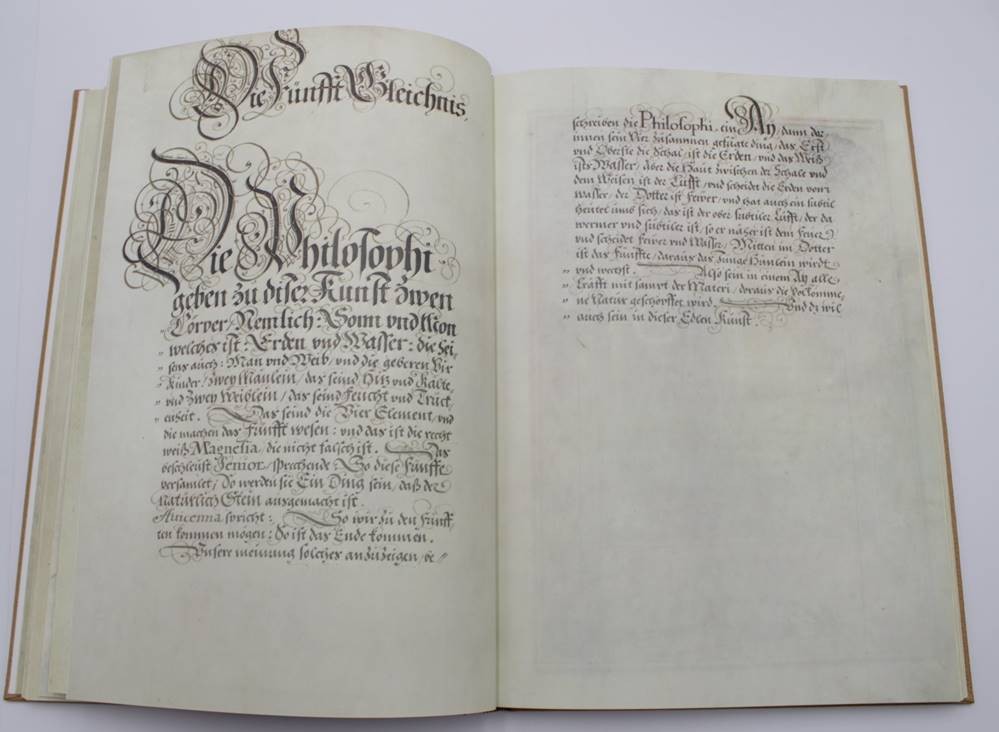 Die Fünfft Gleichnis,
Die Philosophi
geben zu diser Kunst zwen
Cörper, Nemlich: Sonn vnd Mon
welches ist: Erden vnd Wasser: die hei-
sens auch: Man vnd Weib, vnd die geberen Vir
Kinder, zwey Mänlein, das seind Hitz vnd Kälte,
vnd zwey Weiblein, das seind Feücht vnd Truck
enheit. Das seind die Vier Element, vnd
die machen das Fünfft wesen: vnd das ist die recht
weiß Magnesia, die nicht falsch ist. Das
beschleust Senior, sprechende: So diese fünffe
versamlet, So werden sie Ein Ding sein, daß der
Natürlich Stein ausgemacht ist.
Auicenna spricht: So wir zu den Fünff
ten kommen mögen: So ist das Ende kommen.
Vnsere meinung solches anzuzeigen, be⸗
schreiben die Philosophi ein Ay, dann dar-
innen sein Vier zusammen gefügte ding, das Erst
vnd Oberste die Schal, ist die Erden, vnd das Weiß
ists Wasser, aber die Haut zwischen der Schale vnd
dem Weisen ist der Lüfft, vnd scheidt die Erden vom
Wasser, der Dotter ist Fewer, vnd hat auch ein subtiel
heutel umb sich, das ist der ober subtiler Lufft, der da
wermer vnd subtiler ist, so er näher ist dem Feuer
vnd scheidet Fewer vnd Wasser, Mitten im Dotter
ist das Fünffte, daraus das Junge Hünlein wirdt
vnd wechst. Also sein in einem Ay alle
Krafft mit sampt der Materi, doraus die Volkomme,
ne Natur geschörfft wird, Vnd dz wil
auch sein in dieser Edlen Kunst